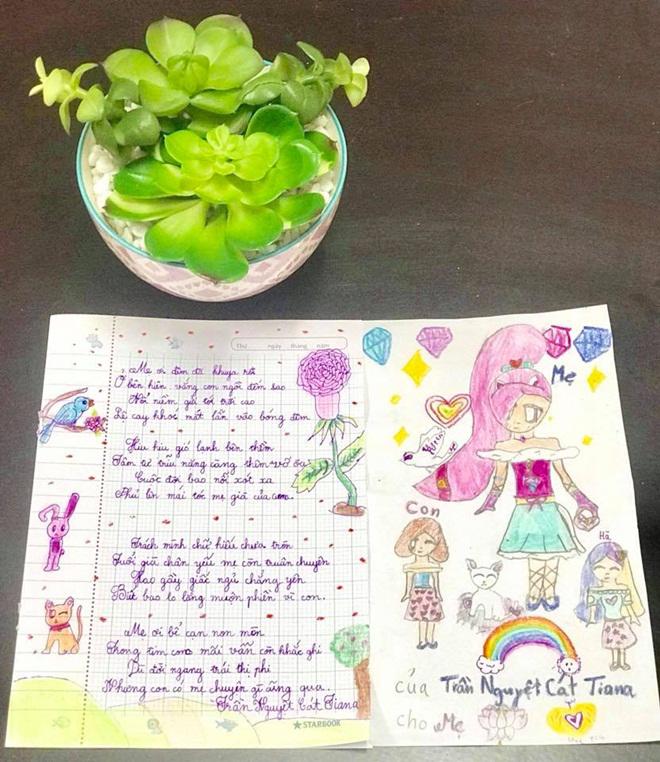 Thứ ngày tháng năm
Mẹ ơi đêm đã khuya rồi
Ở bên hiên vắng con ngồi đếm sao
Nỗi niềm gửi tới trời cao
Lệ cay khoé mắt lẫn vào bóng đêm
Hiu hiu gió lạnh bên thềm
Tâm tư trĩu nặng càng thêm vỡ oà
Cuộc đời bao nỗi xót xa
Phủ lên mái tóc mẹ già của con.
Trách mình chữ hiếu chưa tròn
Tuổi già chân yếu mẹ còn truân chuyên
Hao gầy giấc ngủ chẳng yên
Biết bao lo lắng muộn phiền vì con.
Mẹ ơi bể cạn non mòn
Trong tim con mãi vẫn còn khắc ghi
Dù đời ngang trái thị phi
Nhưng con có mẹ chuyện gì cũng qua..
Trần Nguyệt Cát Tiana
STARBOOK
Mẹ
Con
Hà
của Trần Nguyệt Cát Tiana
cho Mẹ